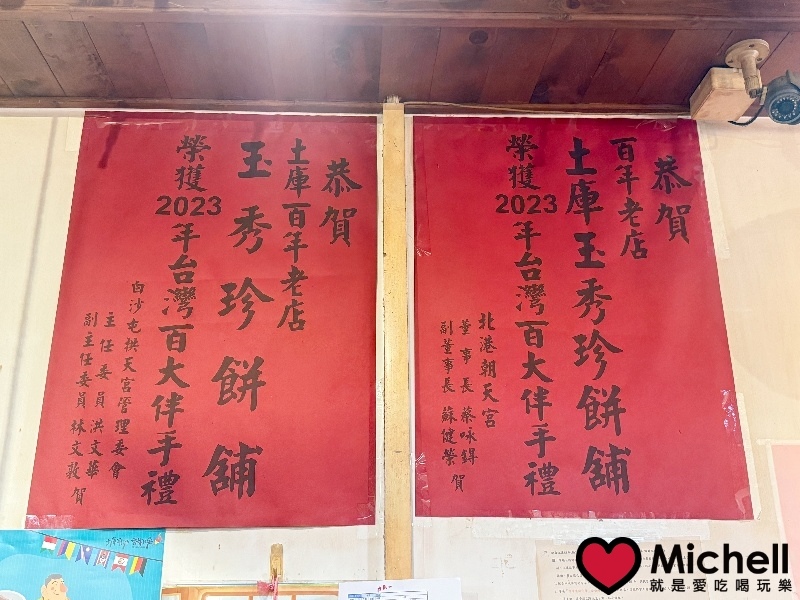 恭賀
百年老店
土庫玉秀珍餅舖
榮獲2023年台灣百大伴手禮
北港朝天宮
董事長 蔡咏鍀
副董事長 蘇健榮 賀
恭賀
土庫百年老店
玉秀珍餅舖
榮獲2023年台灣百大伴手禮
白沙屯拱天宮管理委會
主任委員 洪文華
副主任委員 林文敦 賀
Michell
就是愛吃喝玩樂